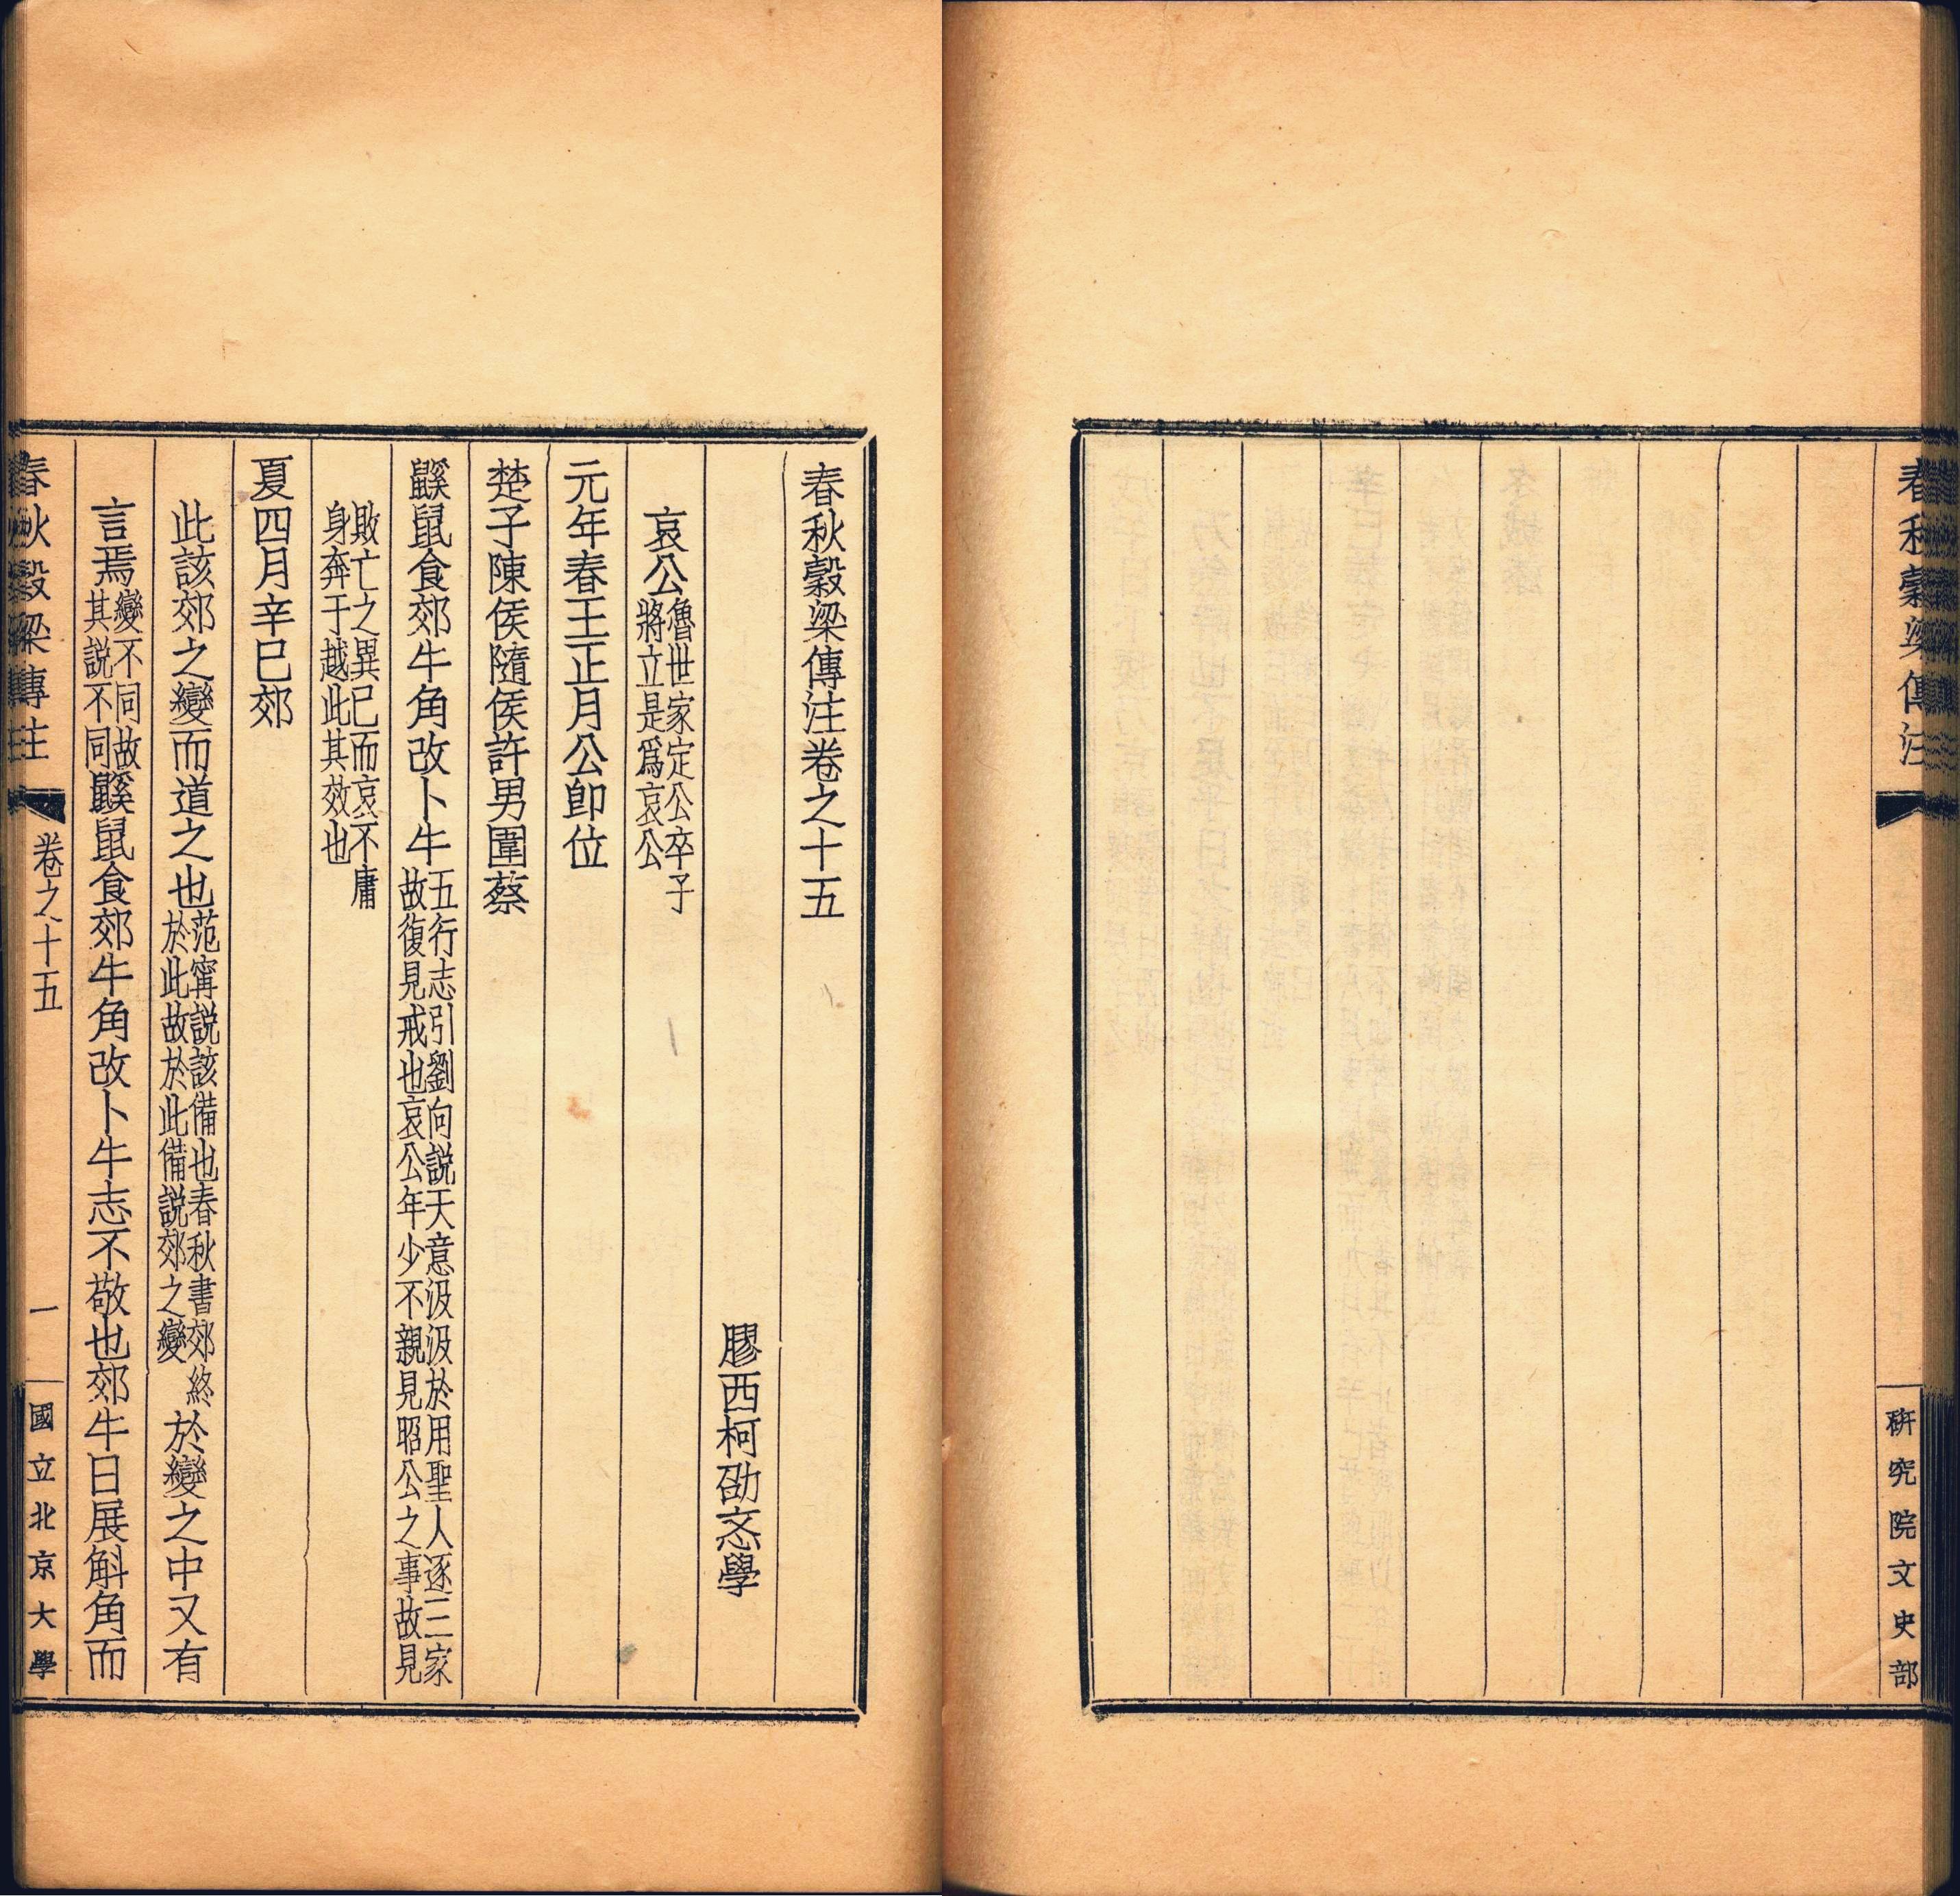 春秋穀梁傳注
研究院文史部
春秋穀梁傳注卷之十五
膠西柯劭忞學
哀公魯世家定公卒子將立是爲哀公
元年春王正月公卽位
楚子陳侯隨侯許男圍蔡
鼷鼠食郊牛角改卜牛五行志引劉向說天意汲汲於用聖人逐三家故復見戒也哀公年少不親見昭公之事故見
敗亡之異已而哀不庸身奔于越此其效也
夏四月辛巳郊
此該郊之變而道之也范甯説該備也春秋書郊終於此故於此備説郊之變於變之中又有
言焉變不同故其説不同鼷鼠食郊牛角改卜牛志不敬也郊牛日展斛角而
春秋穀梁傳注 卷之十五 一 國立北京大學